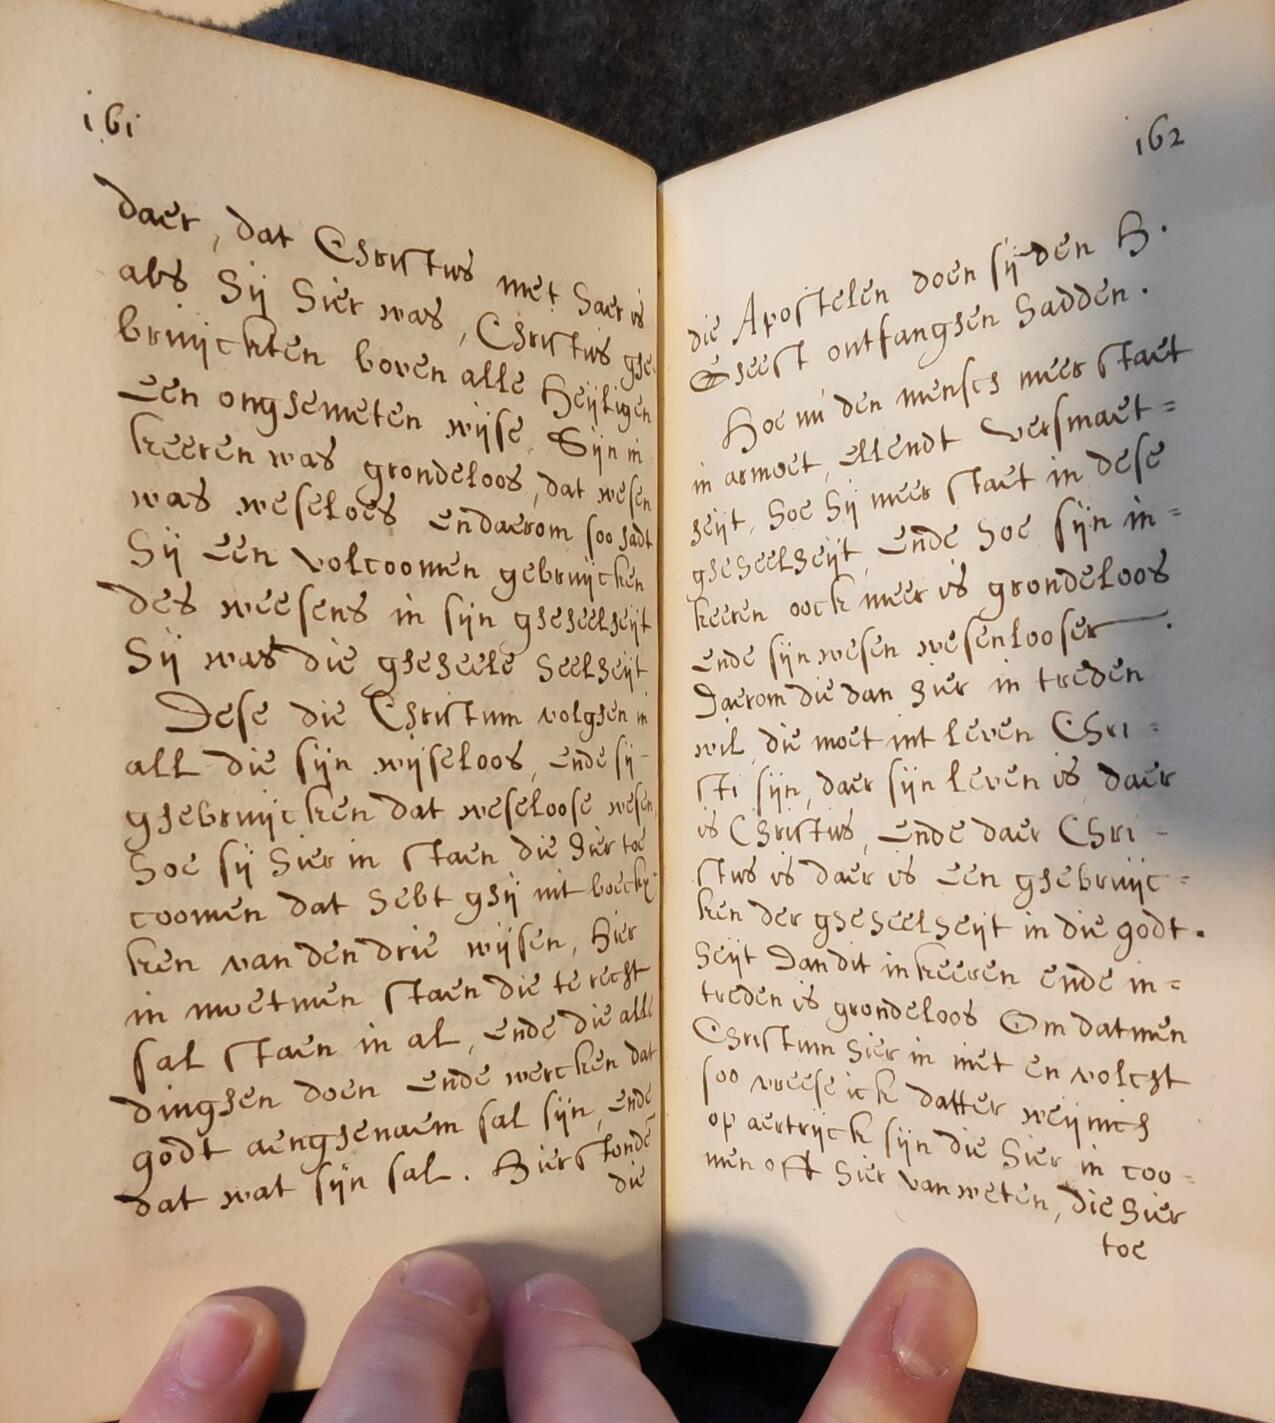 161
daer, dat Christus met haer is
als hij hier was, Christus ghe
bruijckten boven alle heijligen
een onghemeten wijse, Sijn in
keeren was grondeloos, dat wesen
was weseloos endaerom soo hadt
hij een volcoomen gebruijcken
des weesens in sijn gheheelheijt
hij was die gheheele heelheijt
Dese die Christum volghen in
all die sijn wijseloos, ende sij
ghebruijcken dat weseloose wesen
hoe sij hier in staen die hier toe
coomen dat hebt ghij uit boeck
ken van den drie wijsen, hier
in moetmen staen die te recht
sal staen in al, ende die alle
dinghen doen ende wercken dat
godt aenghenaem sal sijn, ende
dat wat sijn sal. Hier stonde
die
162
die Apostelen doen sij den H.
Gheest ontfanghen hadden.
Hoe nu den mensch meer staet
in armoet, ellendt versmaet=
heijt, hoe hij meer staet in dese
gheheelheijt, ende hoe sijn in=
keeren oock meer is grondeloos
ende sijn wesen wesenlooser.
Daerom die dan hier in treden
wil, die moet int leven Chri=
sti sijn, daer sijn leven is daer
is Christus, ende daer Chri-
stus is daer is een ghebruijc=
ken der gheheelheijt in die godt.
heijt Dan dit inkeeren ende in=
treden is grondeloos Om datmen
Christum hier in niet en volcht
soo vreese ick datter weijnich
op aertrijck sijn die hier in coo=
men oft hier van weten, die hier
toe